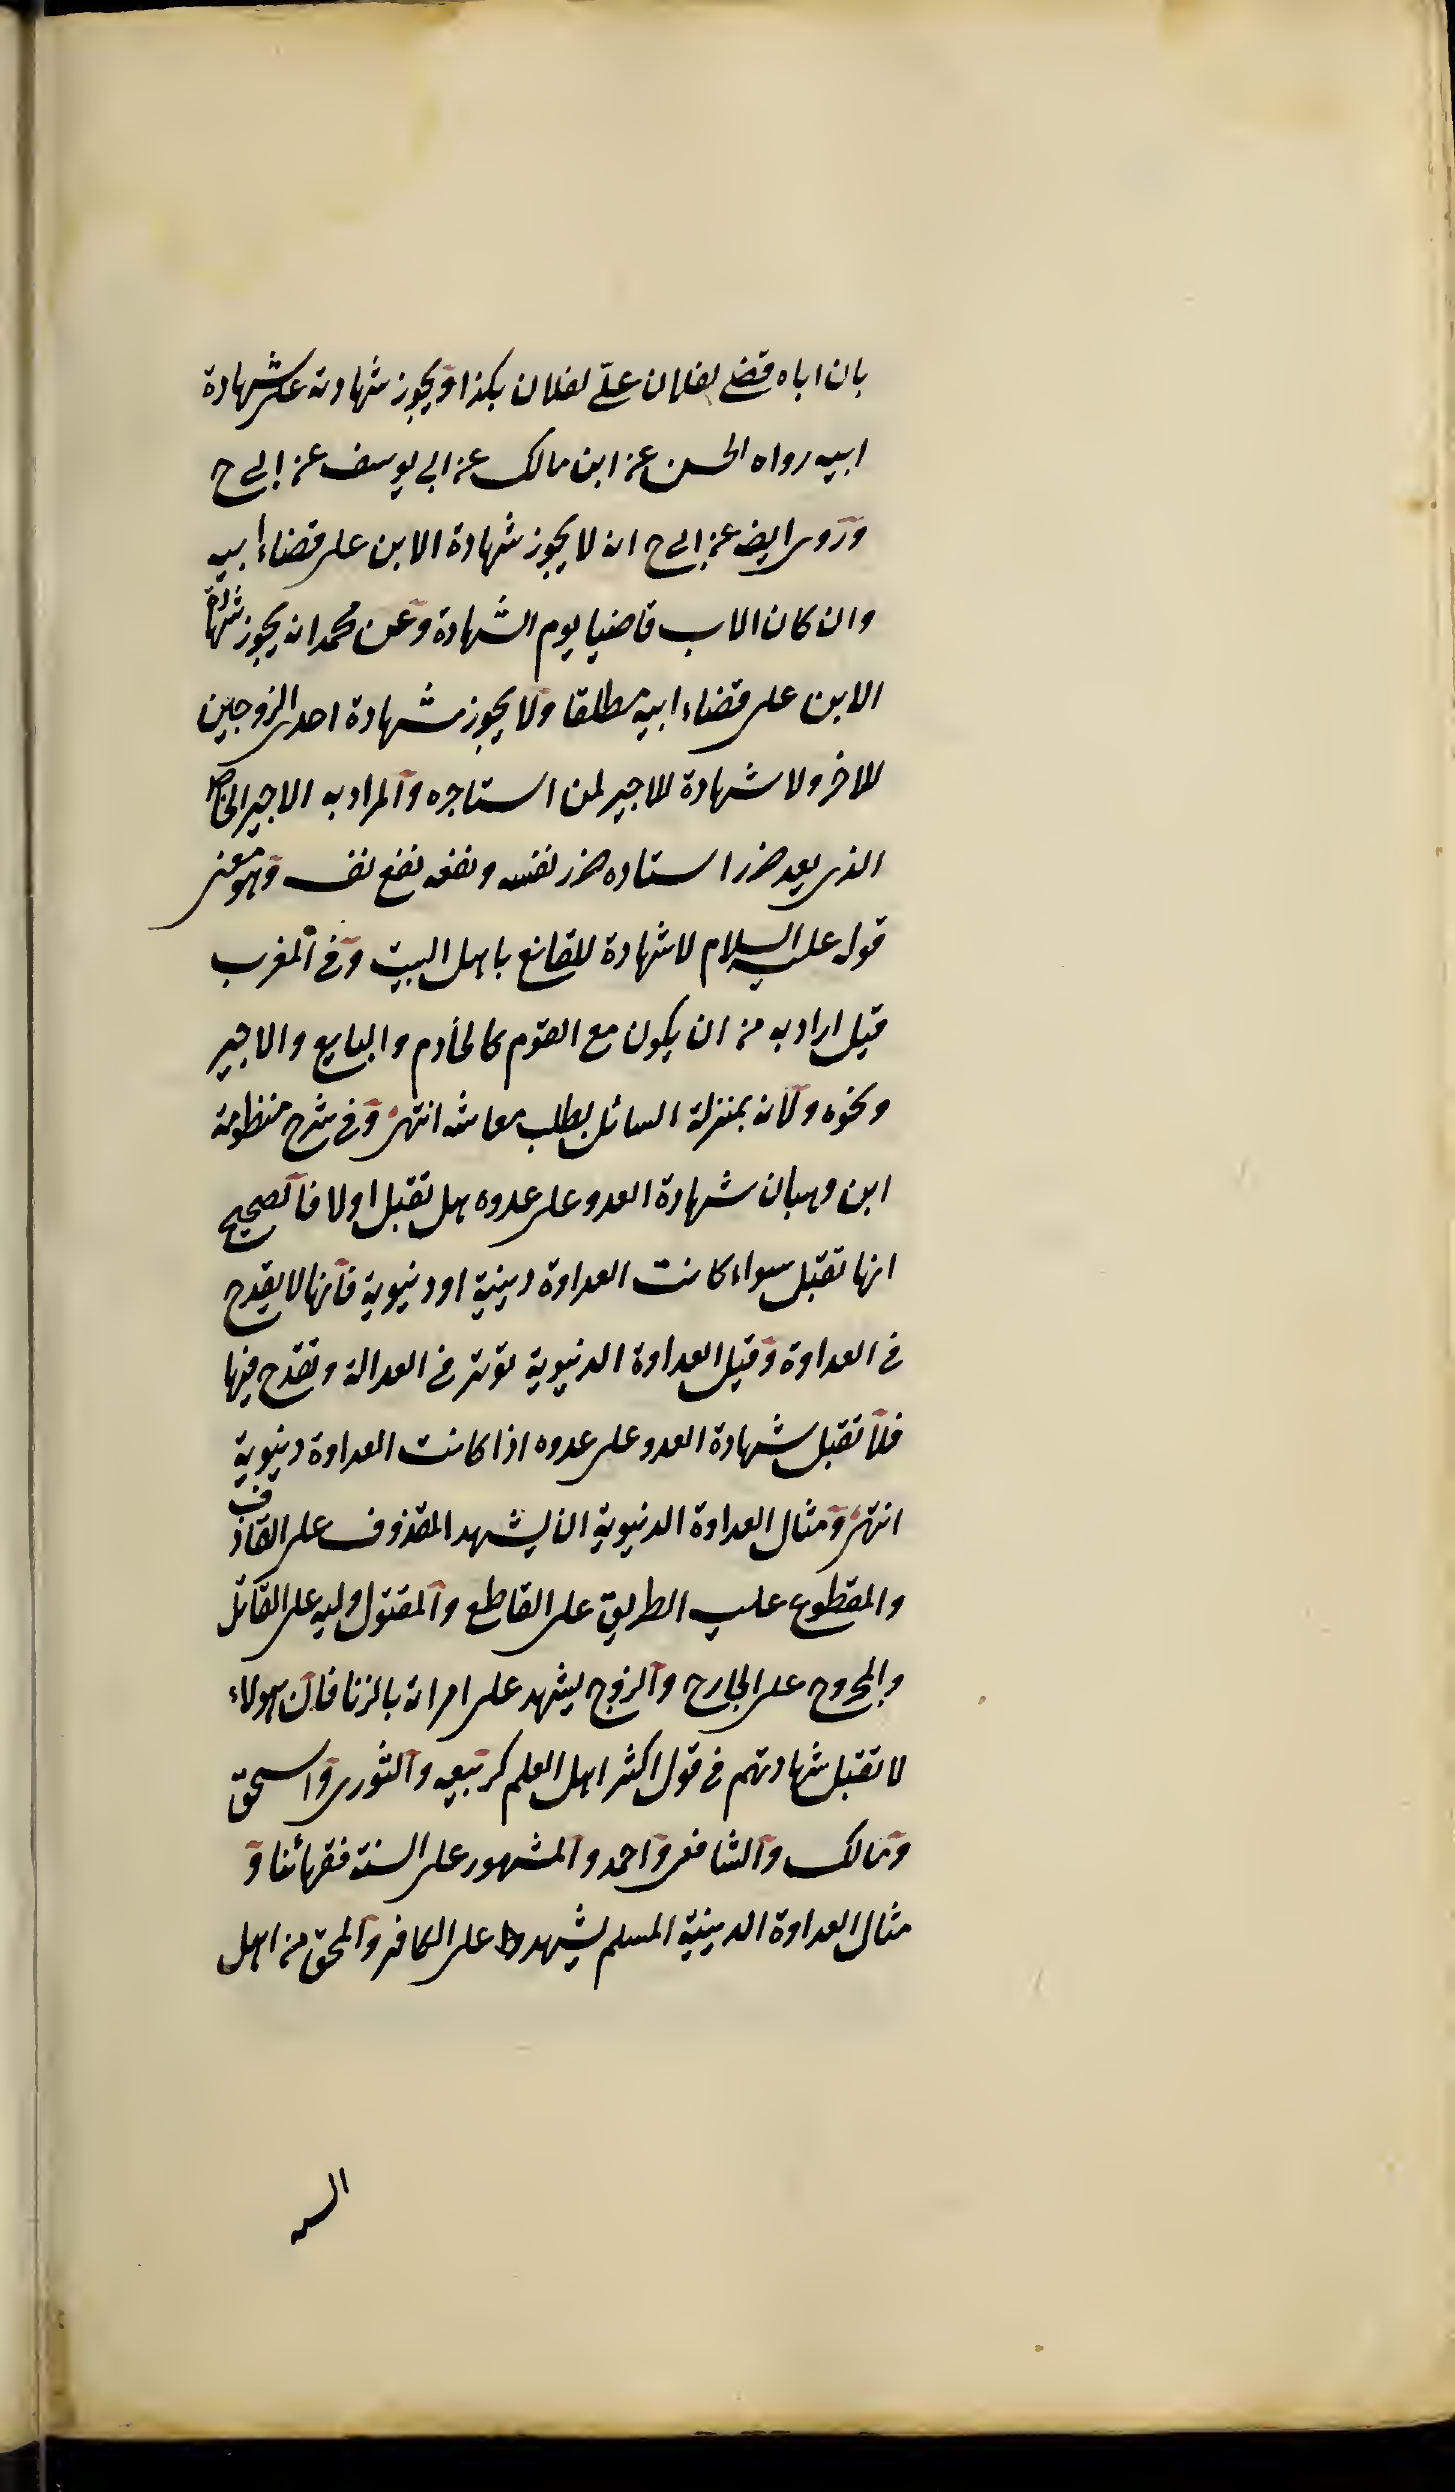 بان اباه قضى لفلان على لفلان بكذا ويجوز شهادته على شهادة
ابيه رواه الحسن عن ابن مالك عن ابي يوسف عن ابي ح
وروى ايض عن ابي ح انه لا يجوز شهادة الابن على قضاء ابيه
وان كان الاب قاضيا يوم الشهادة وعن محمد انه يجوز شهادة
الابن على قضاء ابيه مطلقا ولا يجوز شهادة احدى الزوجين
للاخر ولا شهادة للاجير لمن استاجره والمراد به الاجير الخاص
الذى يعد ضرر استاده ضرر نفسه ونفعه نفع نفسه وهو معنى
قوله عليه السلام لا شهادة للقانع باهل البيت وفى المغرب
قيل اراد به من ان يكون مع القوم كالخادم والبايع والاجير
ونحوه ولانه بمنزلة السائل يطلب معاشه انتهى وفى شرح منظومة
ابن وهبان شهادة العدو على عدوه هل تقبل اولا فالصحيح
انها تقبل سواء كانت العداوة دينية او دنيوية فانها لا يقدح
فى العداوة وقيل العداوة الدنيوية تؤثر فى العدالة وتقدح فيها
فلا تقبل شهادة العدو على عدوه اذا كانت العداوة دنيوية
انتهى ومثال العداوة الدنيوية ان يشهد المقذوف على القاذف
والمقطوع عليه الطريق على القاطع والمقتول وليه على القاتل
والمجروح على الجارح والزوج يشهد على امراته بالزنا فان هولاء
لا تقبل شهادتهم فى قول اكثر اهل العلم كربيعه والثورى واسحق
ومالك والشافعى واحمد والمشهور على السنة فقهائنا و
مثال العداوة الدينية المسلم يشهد على الكافر والمحق من اهل
السنه